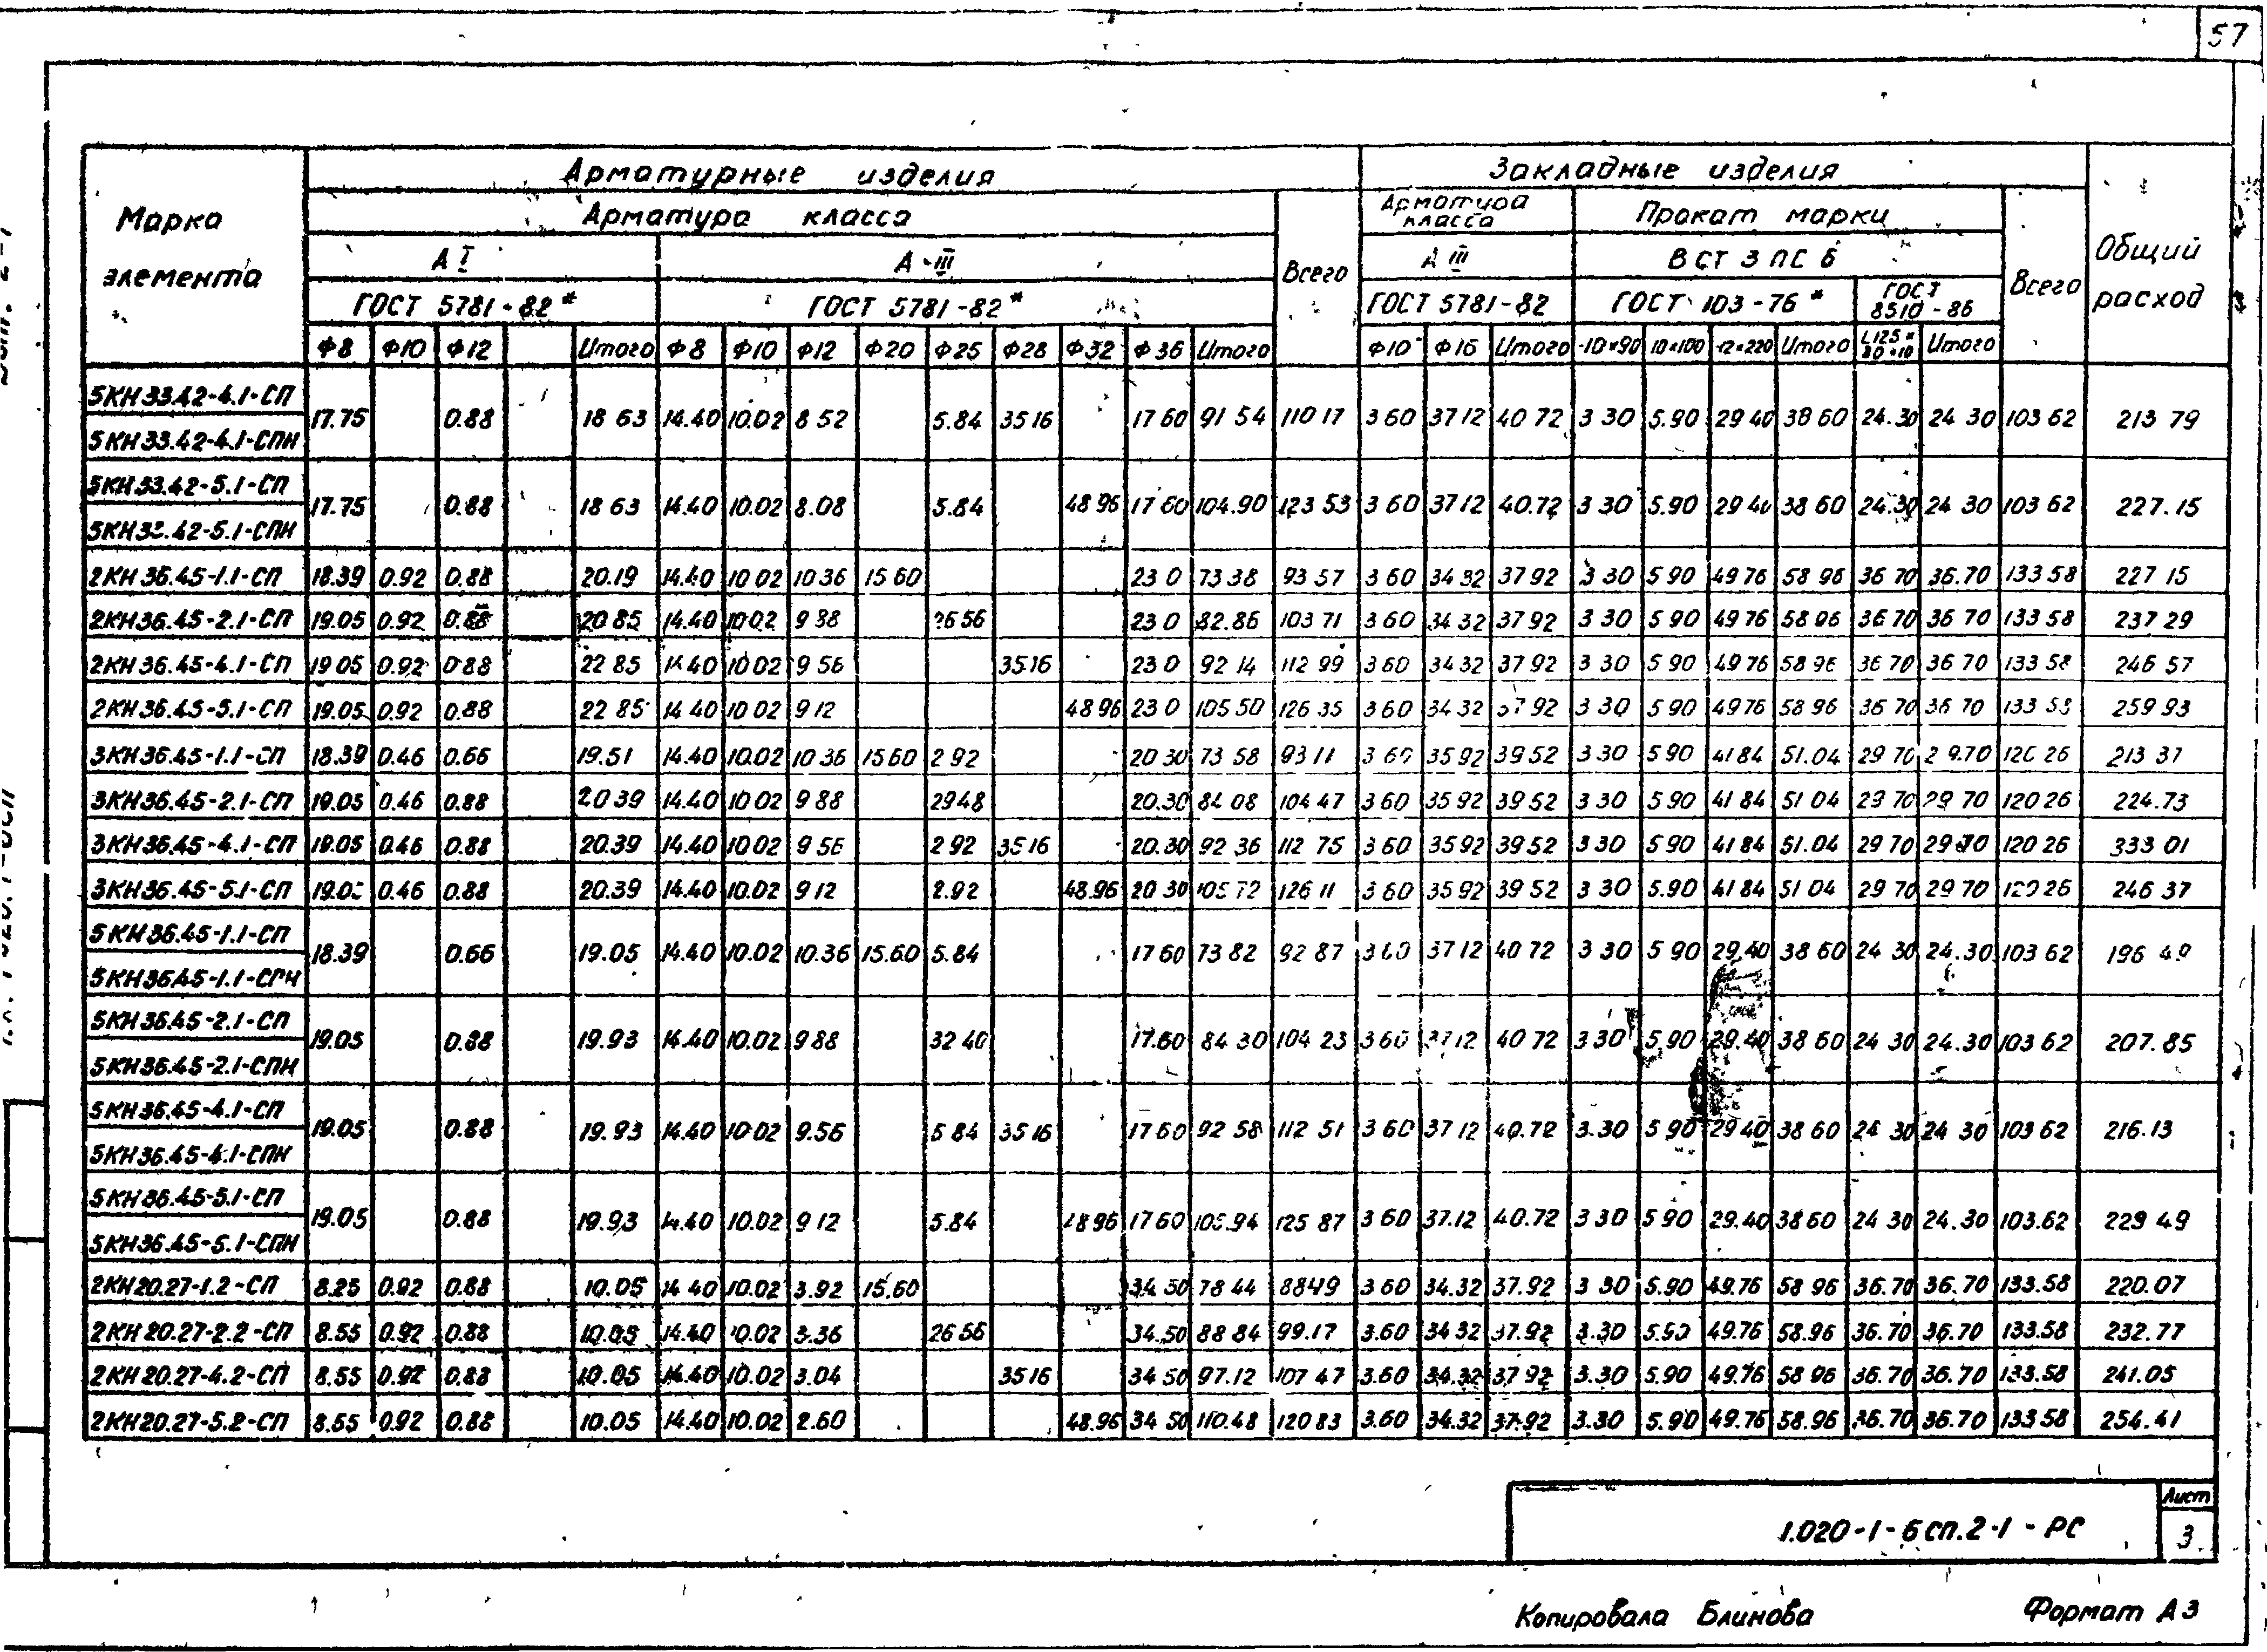 57
Арматурные изделия Закладные изделия
Марка элемента Арматура класса Всего Арматура класса Прокат марки Всего Общий расход
А I А-III А III В СТ 3 ПС 6
ГОСТ 5781-82* ГОСТ 5781-82* ГОСТ 5781-82 ГОСТ 103-76* ГОСТ 8510-86
Ф8 Ф10 Ф12 Итого Ф8 Ф10 Ф12 Ф20 Ф25 Ф28 Ф32 Ф36 Итого Ф10 Ф16 Итого -10×90 10×100 -12×220 Итого L125× 80×10 Итого
5КН33.42-4.1-СП
5КН33.42-4.1-СПН
17.75 0.88 18 63 14.40 10.02 8 52 5.84 35 16 17 60 91 54 110 17 3 60 37 12 40 72 3 30 5.90 29 40 38 60 24.30 24 30 103 62 213 79
5КН33.42-5.1-СП
5КН33.42-5.1-СПН
17.75 0.88 18 63 14.40 10.02 8.08 5.84 48 96 17 60 104.90 123 53 3 60 37 12 40.72 3 30 5.90 29 40 38 60 24.30 24 30 103 62 227.15
2КН36.45-1.1-СП 18.39 0.92 0.88 20.19 14.40 10 02 10 36 15 60 23 0 73 38 93 57 3 60 34 32 37 92 3 30 5 90 49 76 58 96 36 70 36.70 133 58 227 15
2КН36.45-2.1-СП 19.05 0.92 0.88 20 85 14.40 10 02 9 88 26 56 23 0 82.86 103 71 3 60 34 32 37 92 3 30 5 90 49 76 58 96 36 70 36 70 133 58 237 29
2КН36.45-4.1-СП 19 05 0.92 0.88 22 85 14 40 10 02 9 56 35 16 23 0 92 14 112 99 3 60 34 32 37 92 3 30 5 90 49 76 58 96 36 70 36 70 133 58 246 57
2КН36.45-5.1-СП 19.05 0.92 0.88 22 85 14 40 10 02 9 12 48 96 23 0 105 50 126 35 3 60 34 32 37 92 3 30 5 90 49 76 58 96 36 70 36 70 133 58 259 93
3КН36.45-1.1-СП 18.39 0.46 0.66 19.51 14.40 10.02 10 36 15 60 2 92 20 30 73 58 93 11 3 60 35 92 39 52 3 30 5 90 41 84 51.04 29 70 29.70 120 26 213 37
3КН36.45-2.1-СП 19.05 0.46 0.88 20 39 14.40 10 02 9 88 29 48 20.30 84 08 104 47 3 60 35 92 39 52 3 30 5 90 41 84 51 04 29 70 29 70 120 26 224.73
3КН36.45-4.1-СП 19.05 0.46 0.88 20.39 14.40 10 02 9 56 2 92 35 16 20.30 92 36 112 75 3 60 35 92 39 52 3 30 5 90 41 84 51.04 29 70 29 70 120 26 333 01
3КН36.45-5.1-СП 19.05 0.46 0.88 20.39 14.40 10.02 9 12 2.92 48.96 20 30 105 72 126 11 3 60 35 92 39 52 3 30 5.90 41 84 51 04 29 70 29 70 120 26 246 37
5КН36.45-1.1-СП
5КН36.45-1.1-СПН
18.39 0.66 19.05 14.40 10.02 10.36 15.60 5.84 17 60 73 82 92 87 3 60 37 12 40 72 3 30 5 90 29.40 38 60 24 30 24.30 103 62 196 49
5КН36.45-2.1-СП
5КН36.45-2.1-СПН
19.05 0.88 19.93 14.40 10.02 9 88 32 40 17.60 84 30 104 23 3 60 37 12 40 72 3 30 5 90 29.40 38 60 24 30 24.30 103 62 207.85
5КН36.45-4.1-СП
5КН36.45-4.1-СПН
19.05 0.88 19.93 14.40 10 02 9.56 5 84 35 16 17 60 92 58 112 51 3 60 37 12 40.72 3.30 5 90 29 40 38 60 24 30 24 30 103 62 216.13
5КН36.45-5.1-СП
5КН36.45-5.1-СПН
19.05 0.88 19.93 14.40 10.02 9 12 5.84 48 96 17 60 105.94 125 87 3 60 37.12 40.72 3 30 5 90 29.40 38 60 24 30 24.30 103.62 229 49
2КН20.27-1.2-СП 8.25 0.92 0.88 10.05 14 40 10.02 3.92 15.60 34 50 78 44 88 49 3 60 34.32 37.92 3 30 5.90 49.76 58 96 36.70 36.70 133.58 220.07
2КН20.27-2.2-СП 8.55 0.92 0.88 10.05 14.40 10.02 3.36 26 56 34.50 88 84 99.17 3.60 34 32 37.92 3.30 5.90 49.76 58.96 36.70 36.70 133.58 232.77
2КН20.27-4.2-СП 8.55 0.92 0.88 10.05 14.40 10.02 3.04 35 16 34 50 97.12 107 47 3.60 34.32 37 92 3.30 5.90 49.76 58 96 36.70 36.70 133.58 241.05
2КН20.27-5.2-СП 8.55 0.92 0.88 10.05 14.40 10.02 2.60 48.96 34 50 110.48 120 83 3.60 34.32 37.92 3.30 5.90 49.76 58.96 36.70 36.70 133 58 254.41
1.020-1-6СП.2-1-РС
Лист
3
Копировала Блинова Формат А3